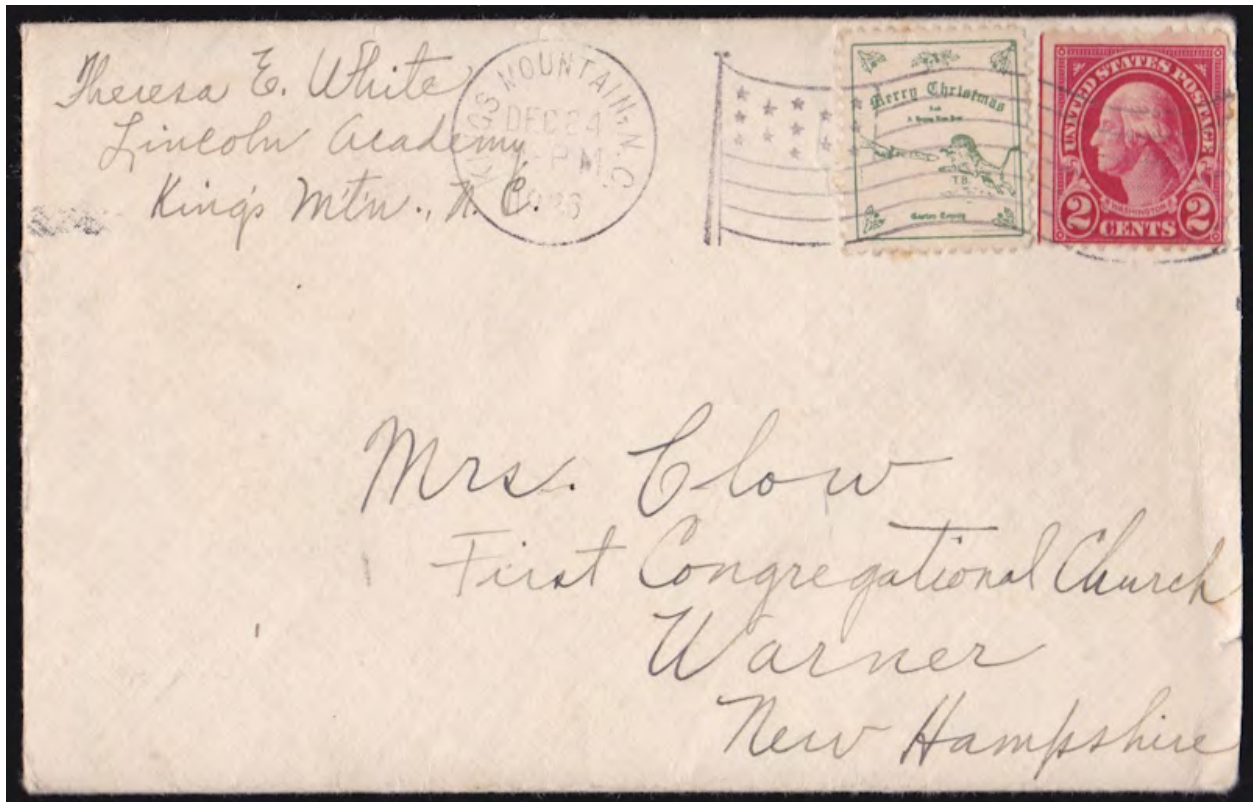 Theresa E. White
Lincoln Academy
King's Mtn., N.C.
KINGS MOUNTAIN, N.C.
DEC 24
PM
1926
Merry Christmas
And
A Happy New Year
T.B.
Gaston County
UNITED STATES POSTAGE
WASHINGTON
2 CENTS 2
Mrs. Clow
First Congregational Church
Warner
New Hampshire